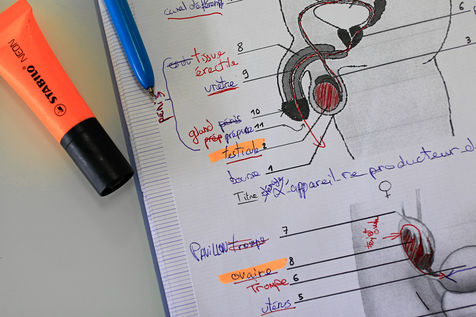 canal déférent
6
8
3
tissue
érectile
9
urètre
penis
10
gland pénis
prépuce 11
testicule 2
bourse 1
Titre : 2-appareil reproducteur d
♀
7
PAVILLON trompe
ovaire 8
Trompe 6
utérus 5
STABILO NEON